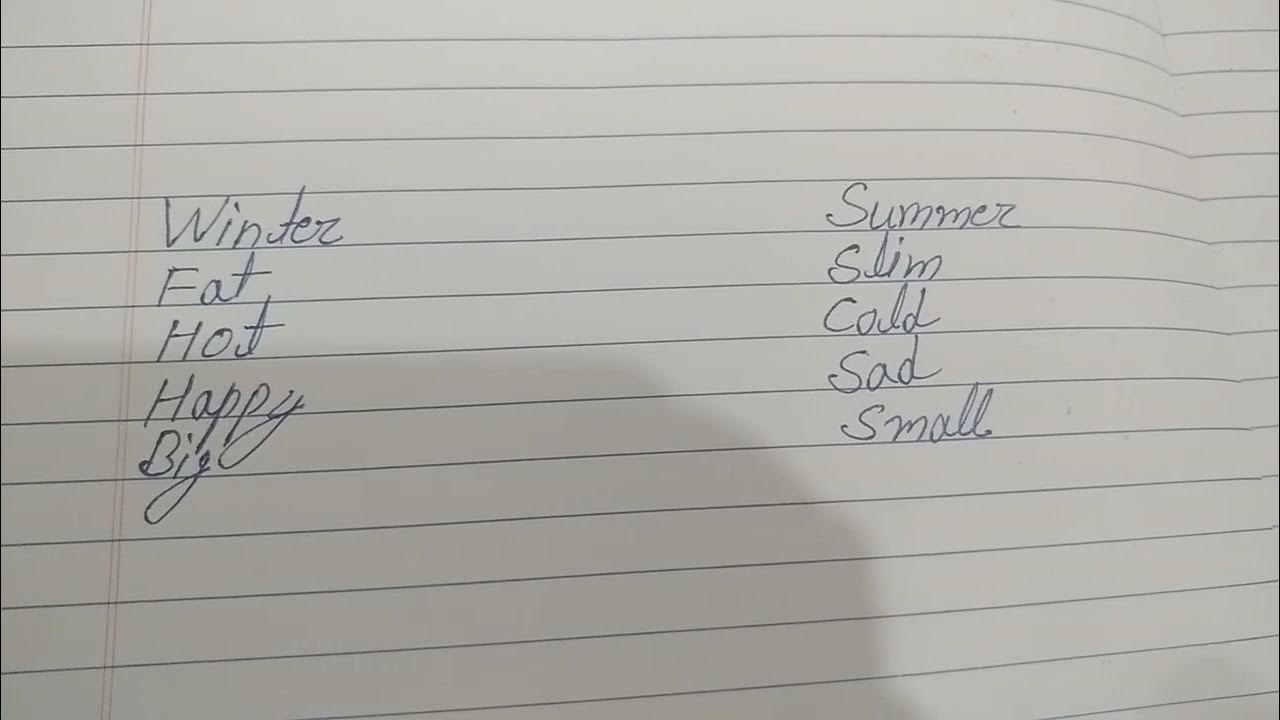 Winter Summer
Fat Slim
Hot Cold
Happy Sad
Big Small